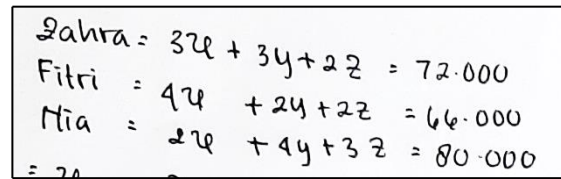 Zahra = 3x + 3y + 2z = 72.000
Fitri = 4x + 2y + 2z = 66.000
Mia = 2x + 4y + 3z = 80.000